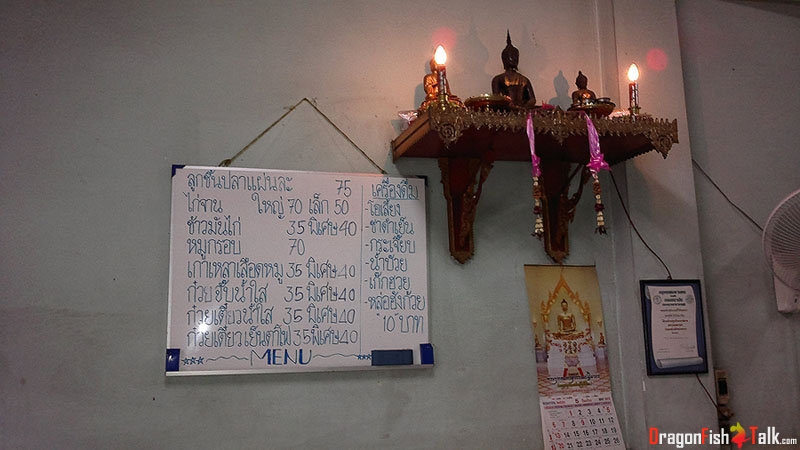 ลูกชิ้นปลาแผ่นละ 75
ไก่จาน ใหญ่ 70 เล็ก 50
ข้าวมันไก่ 35 พิเศษ 40
หมูกรอบ 70
เกาเหลาเลือดหมู 35 พิเศษ 40
ก๋วยจั๊บน้ำใส 35 พิเศษ 40
ก๋วยเตี๋ยวน้ำใส 35 พิเศษ 40
ก๋วยเตี๋ยวเย็นตาโฟ 35 พิเศษ 40
MENU
เครื่องดื่ม
-โอเลี้ยง
-ชาดำเย็น
-กระเจี๊ยบ
-น้ำบ๊วย
-เก๊กฮวย
-หล่อฮั้งก้วย
"10" บาท
5
DragonFishTalk.com